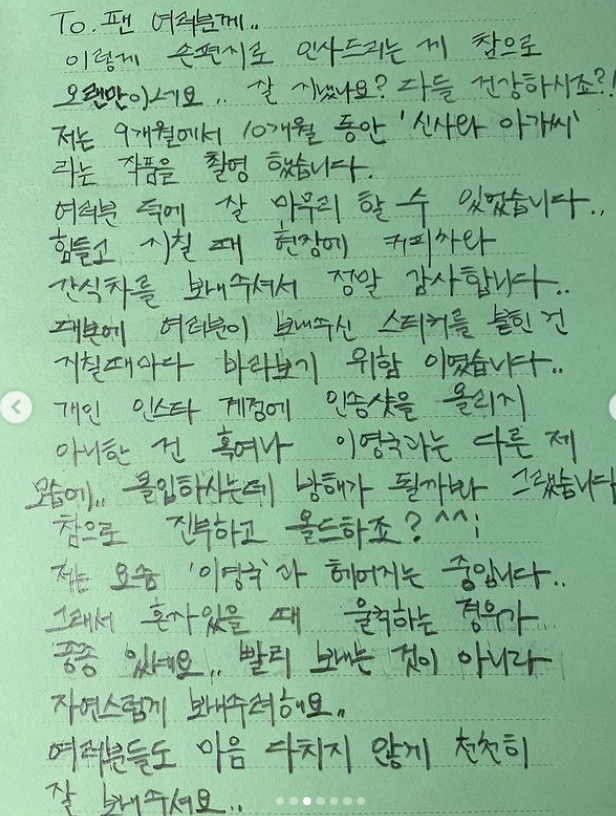 To.팬 여러분께..
이렇게 손편지로 인사드리는 게 참으로
오랜만이네요.. 잘 지냈나요? 다들 건강하시죠?!
저는 9개월에서 10개월 동안 '신사와 아가씨'
라는 작품을 촬영 했습니다.
여러분 덕에 잘 마무리 할 수 있었습니다..
힘들고 지칠 때 현장에 커피차와
간식차를 보내주셔서 정말 감사합니다..
대본에 여러분이 보내주신 스티커를 붙힌 건
지칠때마다 바라보기 위함 이였습니다..
개인 인스타 계정에 인증샷을 올리지
아니한 건 혹여나 이영국과는 다른 제
모습에.. 몰입하시는데 방해가 될까봐 그랬습니다
참으로 진부하고 올드하죠? ^^;
저는 요즘 '이영국'과 헤어지는 중입니다..
그래서 혼자있을 때 울컥하는 경우가
종종 있네요.. 빨리 보내는 것이 아니라
자연스럽게 보내주려해요..
여러분들도 마음 다치지 않게 천천히
잘 보내주셔요..